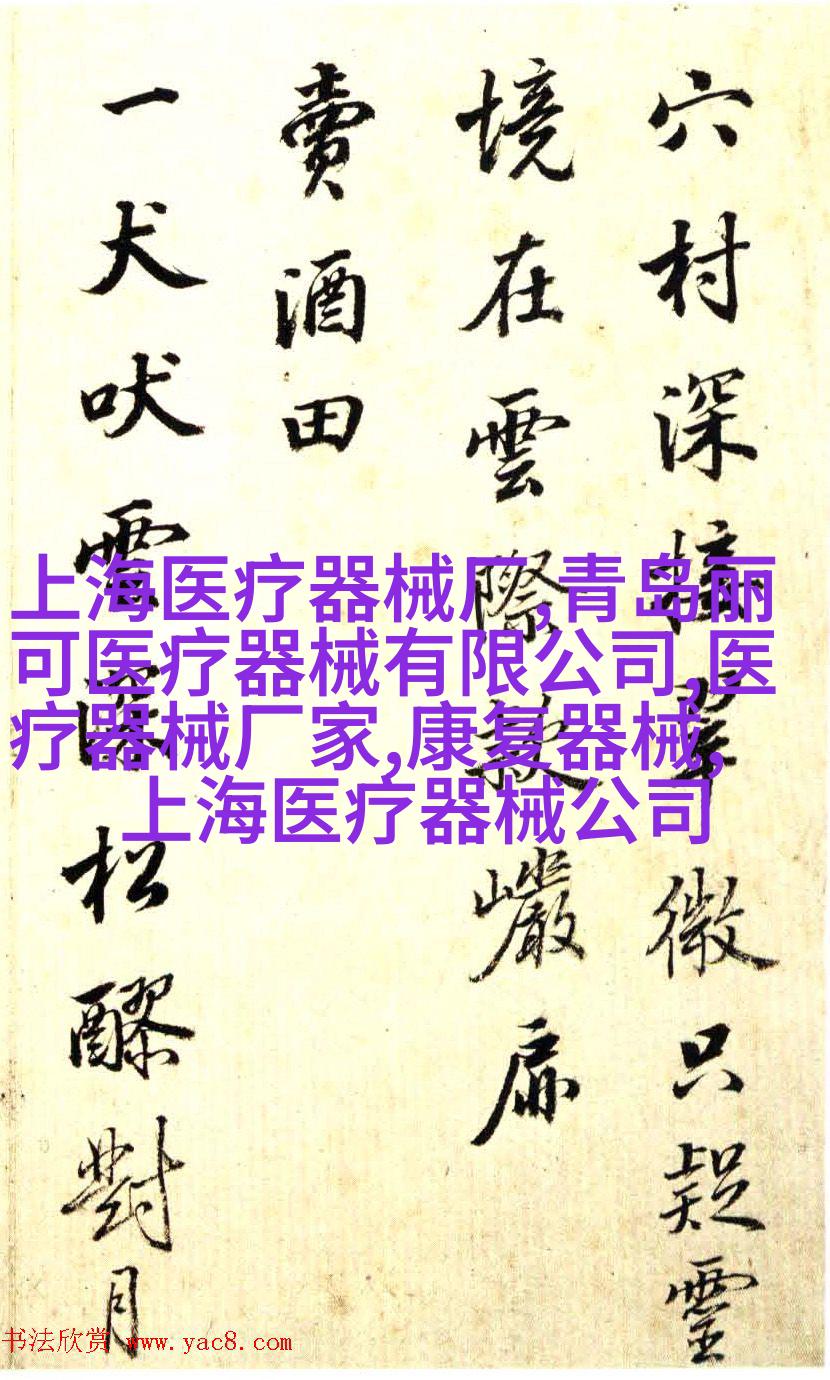 穴村深翠微只疑靈
境在雲際款巖扉
賣酒田
一犬吠雲松醪對月
上海医疗器械厂,青岛丽
可医疗器械有限公司,医
疗器械厂家,康复器械,
上海医疗器械公司
书法欣赏 www.yac8.com